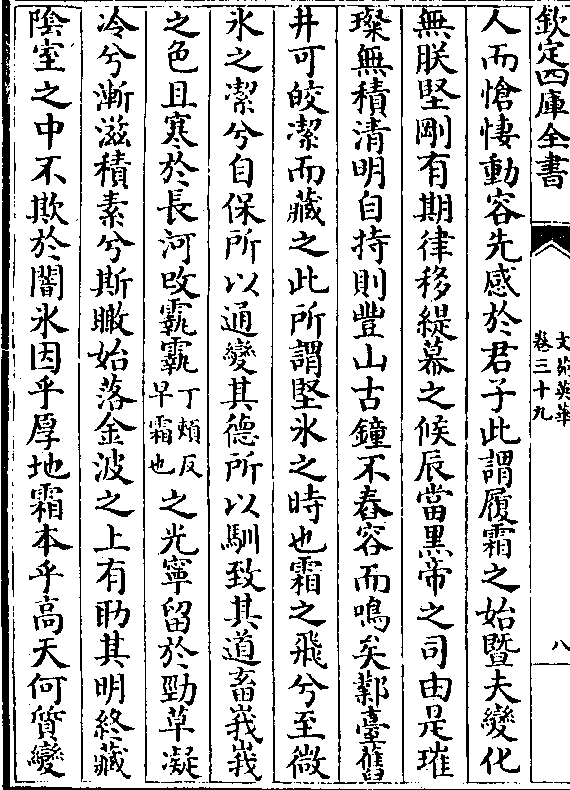 欽定四庫全書
文苑英華
卷三十九
八
人而愴悽動容先感於君子此謂履霜之始暨夫變化
無朕堅剛有期律移緹幕之候辰當黒帝之司由是璀
璨無積清明自持則豐山古鐘不舂容而鳴矣鄴臺舊
井可皎潔而藏之此所謂堅氷之時也霜之飛兮至微
氷之潔兮自保所以通變其德所以馴致其道畜峩峩
之色且寒於長河改霿霿丁頰反早霜也之光寧留於勁草凝
冷兮漸滋積素兮斯瞰始落金波之上有助其明終藏
陰室之中不欺於闇氷因乎厚地霜本乎高天何質變